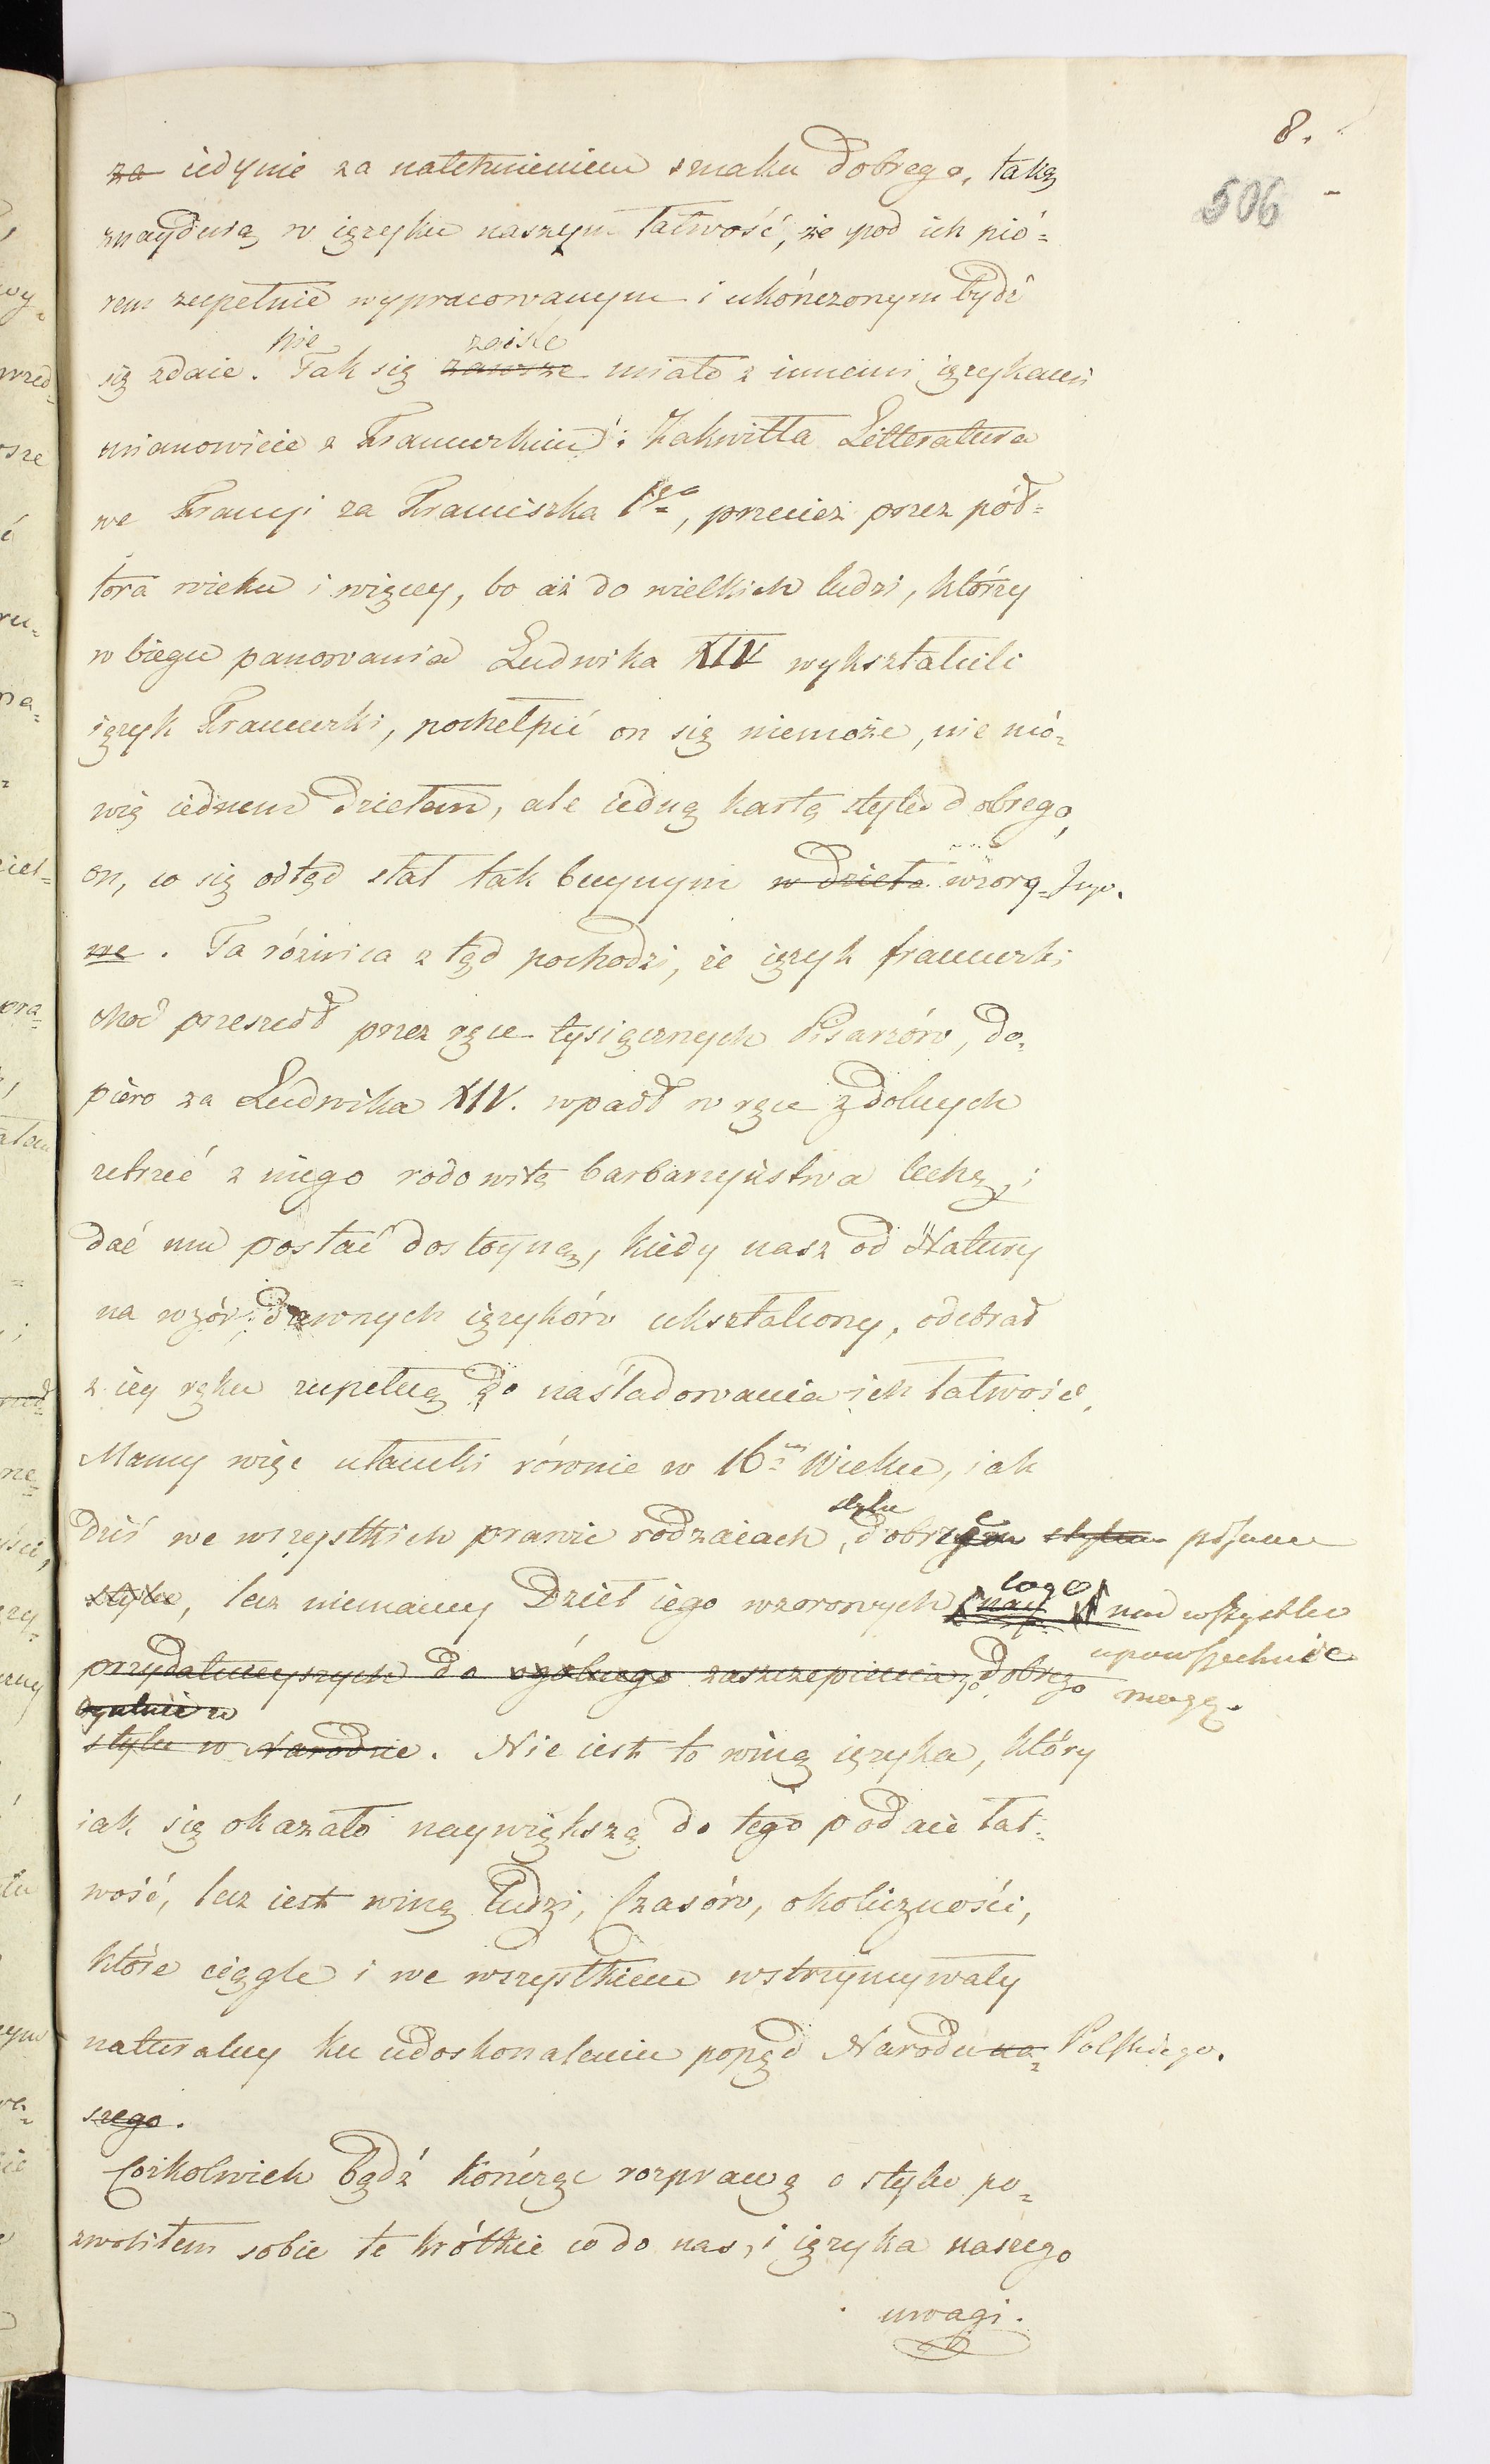 8.
506
za iedynie za natchnieniem smaku dobrego, taką
znayduią w ięzyku naszym łatwość, że pod ich pió=
rem zupełnie wypracowanym i ukończonym bydź
nie zaiste
się zdaie. Tak się zawsze miało z innemi ięzykami
mianowicie z Francuzkim: Zakwitła Litteratura
we Francyi za Franciszka 1go, przecież przez pół=
tora wieku i więcey, bo aż do wielkich ludzi, którzy
w biegu panowania Ludwika XIV wykształcili
ięzyk Francuzki, pochełpić on się niemoże, nie mó=
wię iednem dziełem, ale iedną kartą stylu dobrego,
on, co się odtąd stał tak bucznym w dzieła wzoro=
we. Ta różnica z tąd pochodzi, że ięzyk francuzki
choć przeszedł przez ręce tysiącznych Pisarzów, do=
piero za Ludwika XIV. wpadł w ręce zdolnych
zetrzeć z niego rodowitą barbarzyństwa cechę, i
dać mu postać dostoyną, kiedy nasz od Natury
na wzór dawnych ięzyków ukształcony, odebrał
z iey ręku zupełną do naśladowania ich łatwość.
Mamy więc ułamki równie w 16m Wieku, iak
stylu
dziś we wszystkich prawie rodzaiach, dobrego stylem pisane
stylu, lecz niemamy Dzieł iego wzorowych nay coby nad wszystko
przydatnieyszych do ogólnego zaszczepienia dobrego upowszechnić
ogulnie w mogą.
stylu w Narodzie. Nie iest to winą ięzyka, który
iak się okazało naywiększą do tego podaie łat=
wość, lecz iest winą ludzi, Czasów, okoliczności,
które ciągle i we wszystkiem wstrzymywały
naturalny ku udoskonaleniu popęd Narodu na= Polskiego.
szego.
Cożkolwiek bądź kończąc rozprawę o stylu po=
zwoliłem sobie te krótkie co do nas, i ięzyka naszego
uwagi.